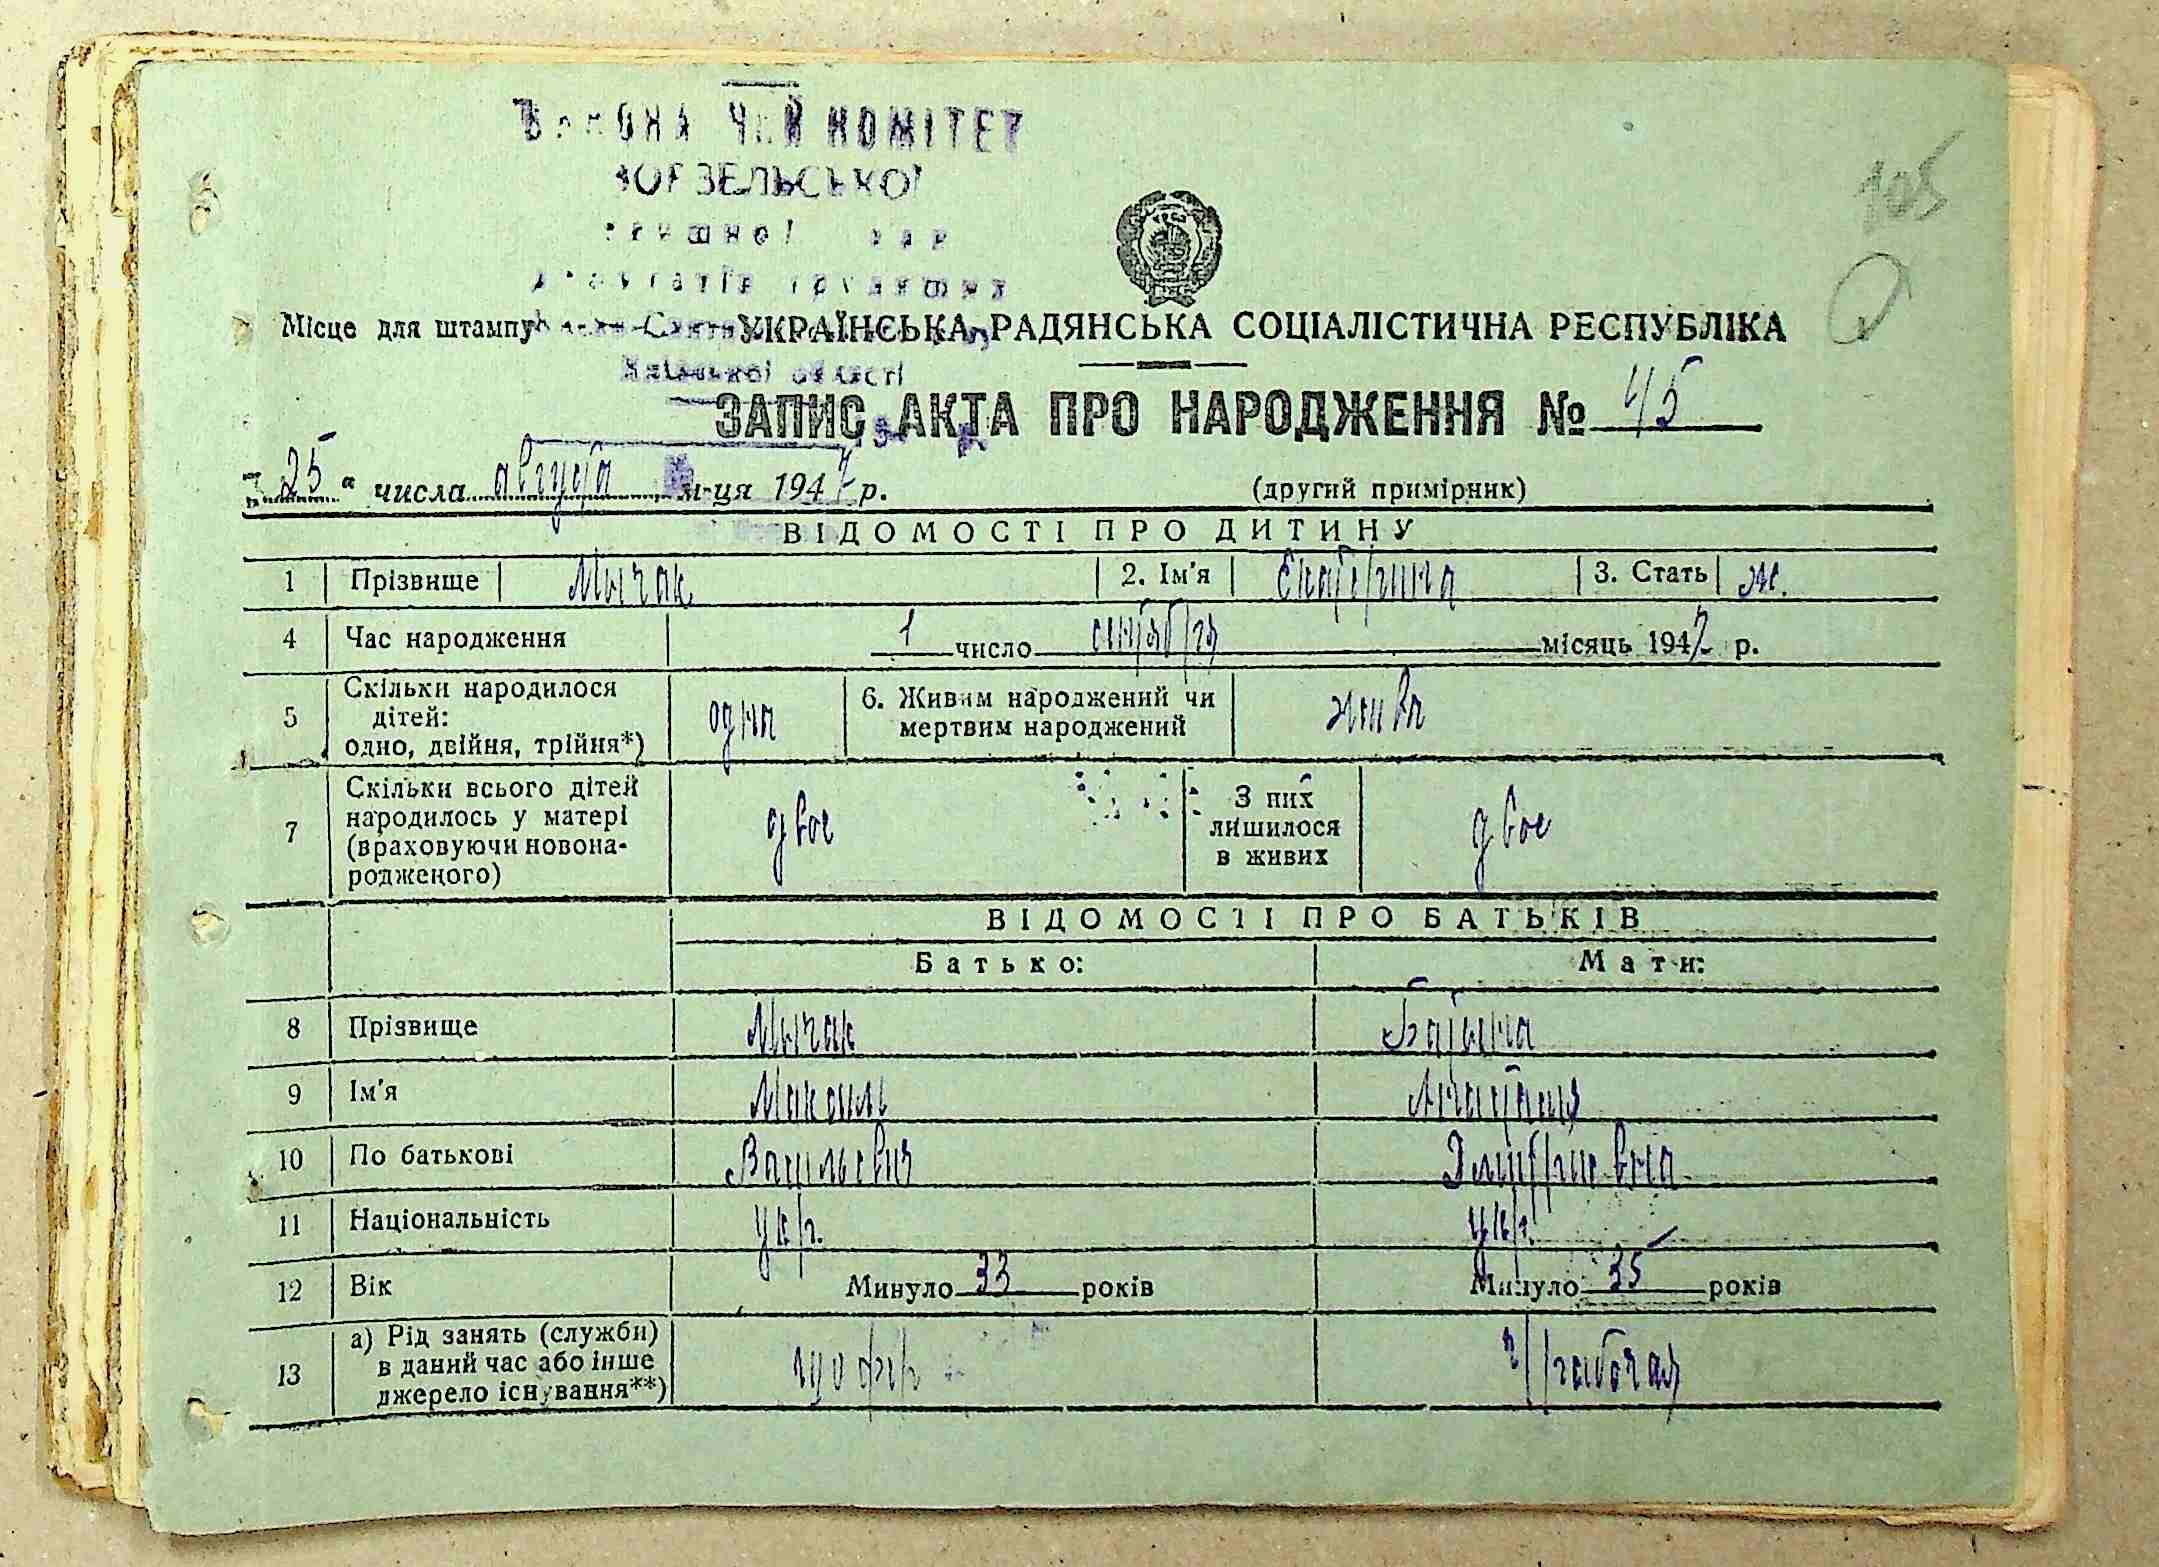 КОМІТЕТ
ВОРЗЕЛЬСЬКОЇ
105
Місце для штампу УКРАЇНСЬКА РАДЯНСЬКА СОЦІАЛІСТИЧНА РЕСПУБЛІКА
області
ЗАПИС АКТА ПРО НАРОДЖЕННЯ № 45
"25" числа августа м-ця 1947 р. (другий примірник)
ВІДОМОСТІ ПРО ДИТИНУ
1 Прізвище Мычак 2. Ім'я Екатерина 3. Стать ж.
4 Час народження 1 число сентября місяць 1947 р.
5 Скільки народилося дітей: одно, двійня, трійня*) одна 6. Живим народжений чи мертвим народжений жива
7 Скільки всього дітей народилось у матері (враховуючи новона-родженого) двое З них лишилося в живих двое
ВІДОМОСТІ ПРО БАТЬКІВ
Батько: Мати:
8 Прізвище Мычак
9 Ім'я Анастасия
10 По батькові Васильевич Дмитриевна
11 Національність укр. укр.
12 Вік Минуло 33 років Минуло 35 років
13 а) Рід занять (служби) в даний час або інше джерело існування**) шофер ч/рабочая